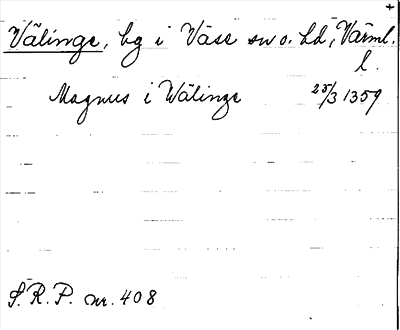 Välinge, by i Väse sn o. hd, Värml.
l.
Magnus i Wälinge 25/3 1359
S.R.P. nr. 408